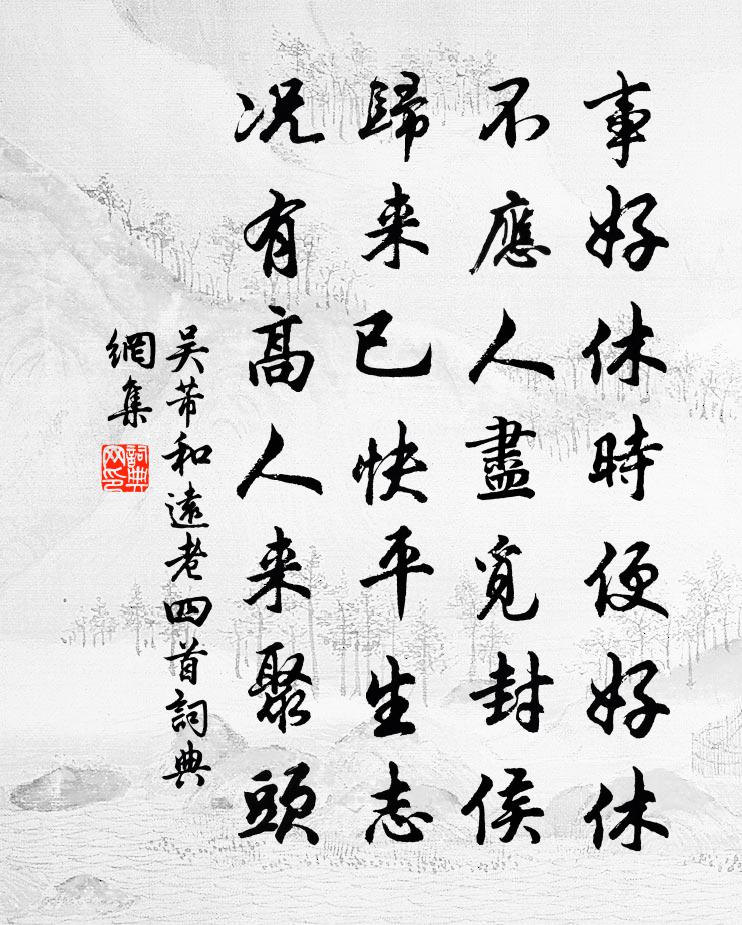 事好休時便好休
不應人盡覓封侯
歸来已快平生志
况有高人来聚頭
吴芾和遠老四首詞典
網集
詞典
网印